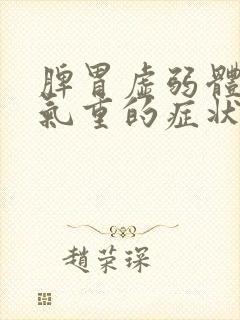 脾胃虛弱體
氣重的症狀
趙荣琛